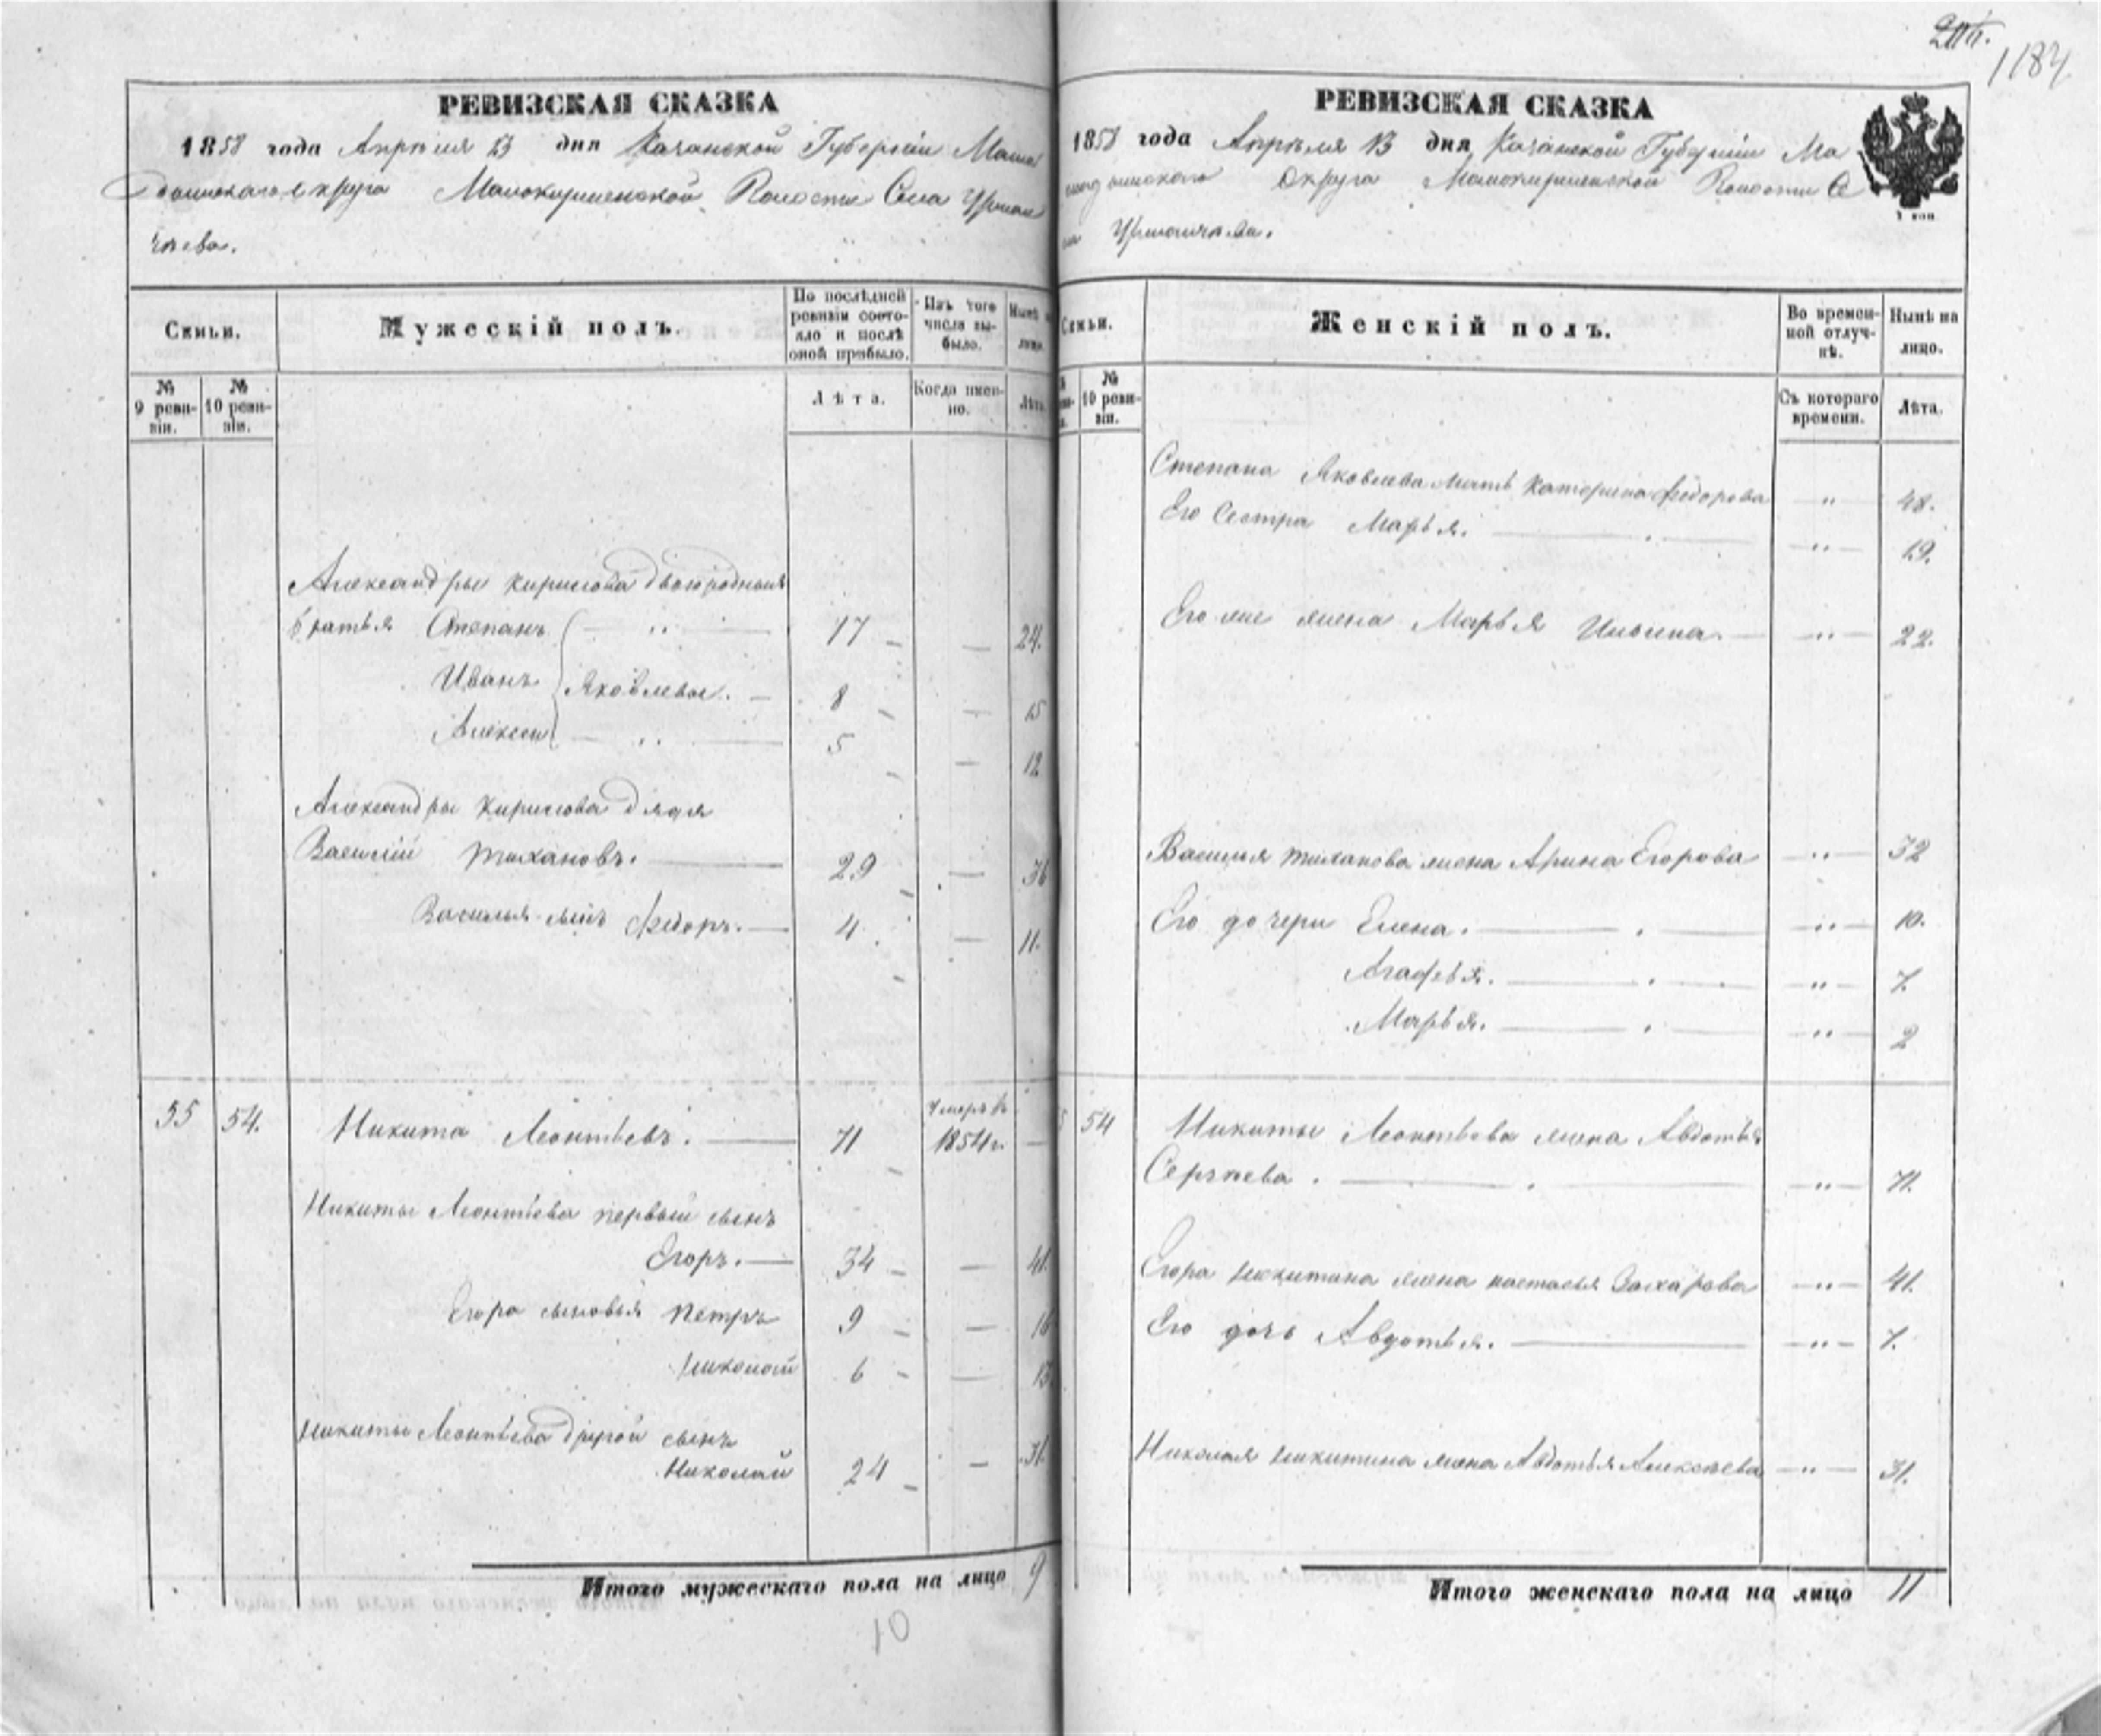 1184
РЕВИЗСКАЯ СКАЗКА
1858 года Апреля 13 дня Казанской Губернiи Мама
дышскаго округа Малокирменской Волости Села Урман
чѣева.
Семьи.
Мужескiй полъ.
По послѣдней ревизiи состояло и послѣ оной прибыло.
Изъ того числа выбыло.
Нынѣ на лицо.
№ 9 ревизiи.
№ 10 ревизiи.
Лѣта.
Когда именно.
Лѣта.
Александры Кирилова двоюродныя
братья Степанъ 17 — 24.
Иванъ Яковлевы. 8 — 15
Алексѣй 5 — 12
Александры Кирилова дядя
Василiй Тихановъ. 29 — 36
Василья сынъ Федоръ. 4 — 11.
55 54. Никита Леонтьевъ. 71 Умеръ въ 1854 г. —
Никиты Леонтьева первый сынъ
Егоръ. 34 — 41.
Егора сыновья Петръ 9 — 16
Николай 6 — 13.
Никиты Леонтьева другой сынъ
Николай 24 — 31.
Итого мужескаго пола на лицо 9
10
РЕВИЗСКАЯ СКАЗКА
1858 года Апрѣля 13 дня Казанской Губернiи Ма
мадышскаго Округа Малокирменской Волости Се
ла Урманчѣева.
Семьи.
Женскiй полъ.
Во временной отлучкѣ.
Нынѣ на лицо.
№ 10 ревизiи.
Съ котораго времени.
Лѣта.
Степана Яковлева мать Катерина Федорова „ 48.
Его Сестра Марья. „ 19.
Его же жена Марья Ильина. „ 22.
Василья Тиханова жена Арина Егорова „ 32
Его дочери Елена. „ 10.
Агафья. „ 7.
Марья. „ 2
54 Никиты Леонтьева жена Авдотья
Сергѣева. „ 71.
Егора Никитина жена Настасья Захарова „ 41.
Его дочь Авдотья. „ 7.
Николая Никитина жена Авдотья Алексѣева „ 31.
Итого женскаго пола на лицо 11